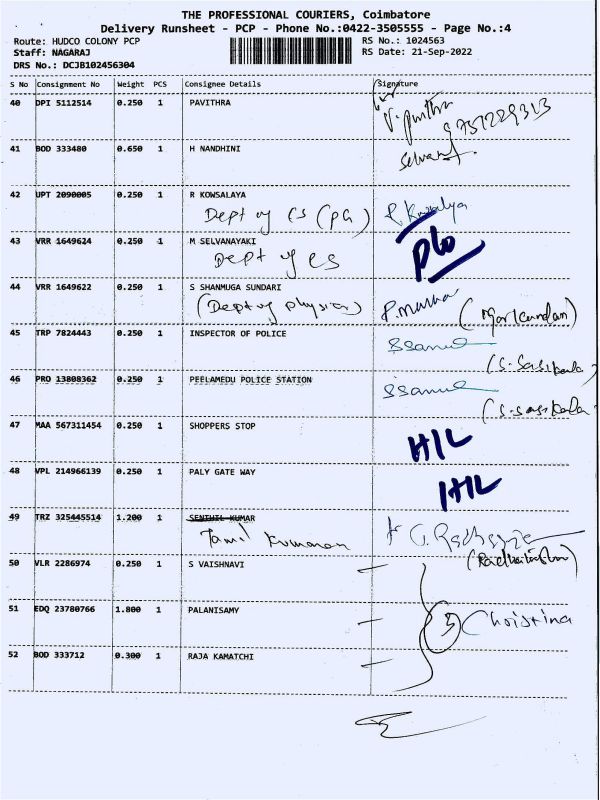 THE PROFESSIONAL COURIERS, Coimbatore
Delivery Runsheet - PCP - Phone No.:0422-3505555 - Page No.:4
Route: HUDCO COLONY PCP RS No.: 1024563
Staff: NAGARAJ RS Date: 21-Sep-2022
DRS No.: DCJB102456304
S No Consignment No Weight PCS Consignee Details Signature
40 DPI 5112514 0.250 1 PAVITHRA
9751229313
41 BOD 333480 0.650 1 H NANDHINI
Selvam
42 UPT 2090005 0.250 1 R KOWSALAYA
Dept of CS (PG)
43 VRR 1649624 0.250 1 M SELVANAYAKI
Dept of CS
44 VRR 1649622 0.250 1 S SHANMUGA SUNDARI
(Dept of physics)
45 TRP 7824443 0.250 1 INSPECTOR OF POLICE
(S. Sasikala)
46 PRO 13808362 0.250 1 PEELAMEDU POLICE STATION
(S. Sasikala
47 MAA 567311454 0.250 1 SHOPPERS STOP
H/L
48 VPL 214966139 0.250 1 PALY GATE WAY
H/L
49 TRZ 325445514 1.200 1 SENTHIL KUMAR
Tamil Kumaran
50 VLR 2286974 0.250 1 S VAISHNAVI
51 EDQ 23780766 1.800 1 PALANISAMY
3 Christina
52 BOD 333712 0.300 1 RAJA KAMATCHI